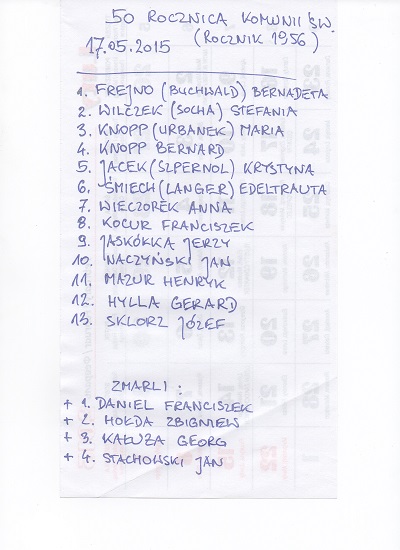 50 ROCZNICA KOMUNII ŚW.
17.05.2015 (ROCZNIK 1956)
1. FREJNO (BUCHWALD) BERNADETA
2. WILCZEK (SOCHA) STEFANIA
3. KNOPP (URBANEK) MARIA
4. KNOPP BERNARD
5. JACEK (SZPERNOL) KRYSTYNA
6. ŚMIECH (LANGER) EDELTRAUTA
7. WIECZOREK ANNA
8. KOCUR FRANCISZEK
9. JASKÓŁKA JERZY
10. NACZYŃSKI JAN
11. MAZUR HENRYK
12. HYLLA GERARD
13. SKLORZ JÓZEF
ZMARLI :
+ 1. DANIEL FRANCISZEK
+ 2. HOŁDA ZBIGNIEW
+ 3. KAŁUŻA GEORG
+ 4. STACHOWSKI JAN